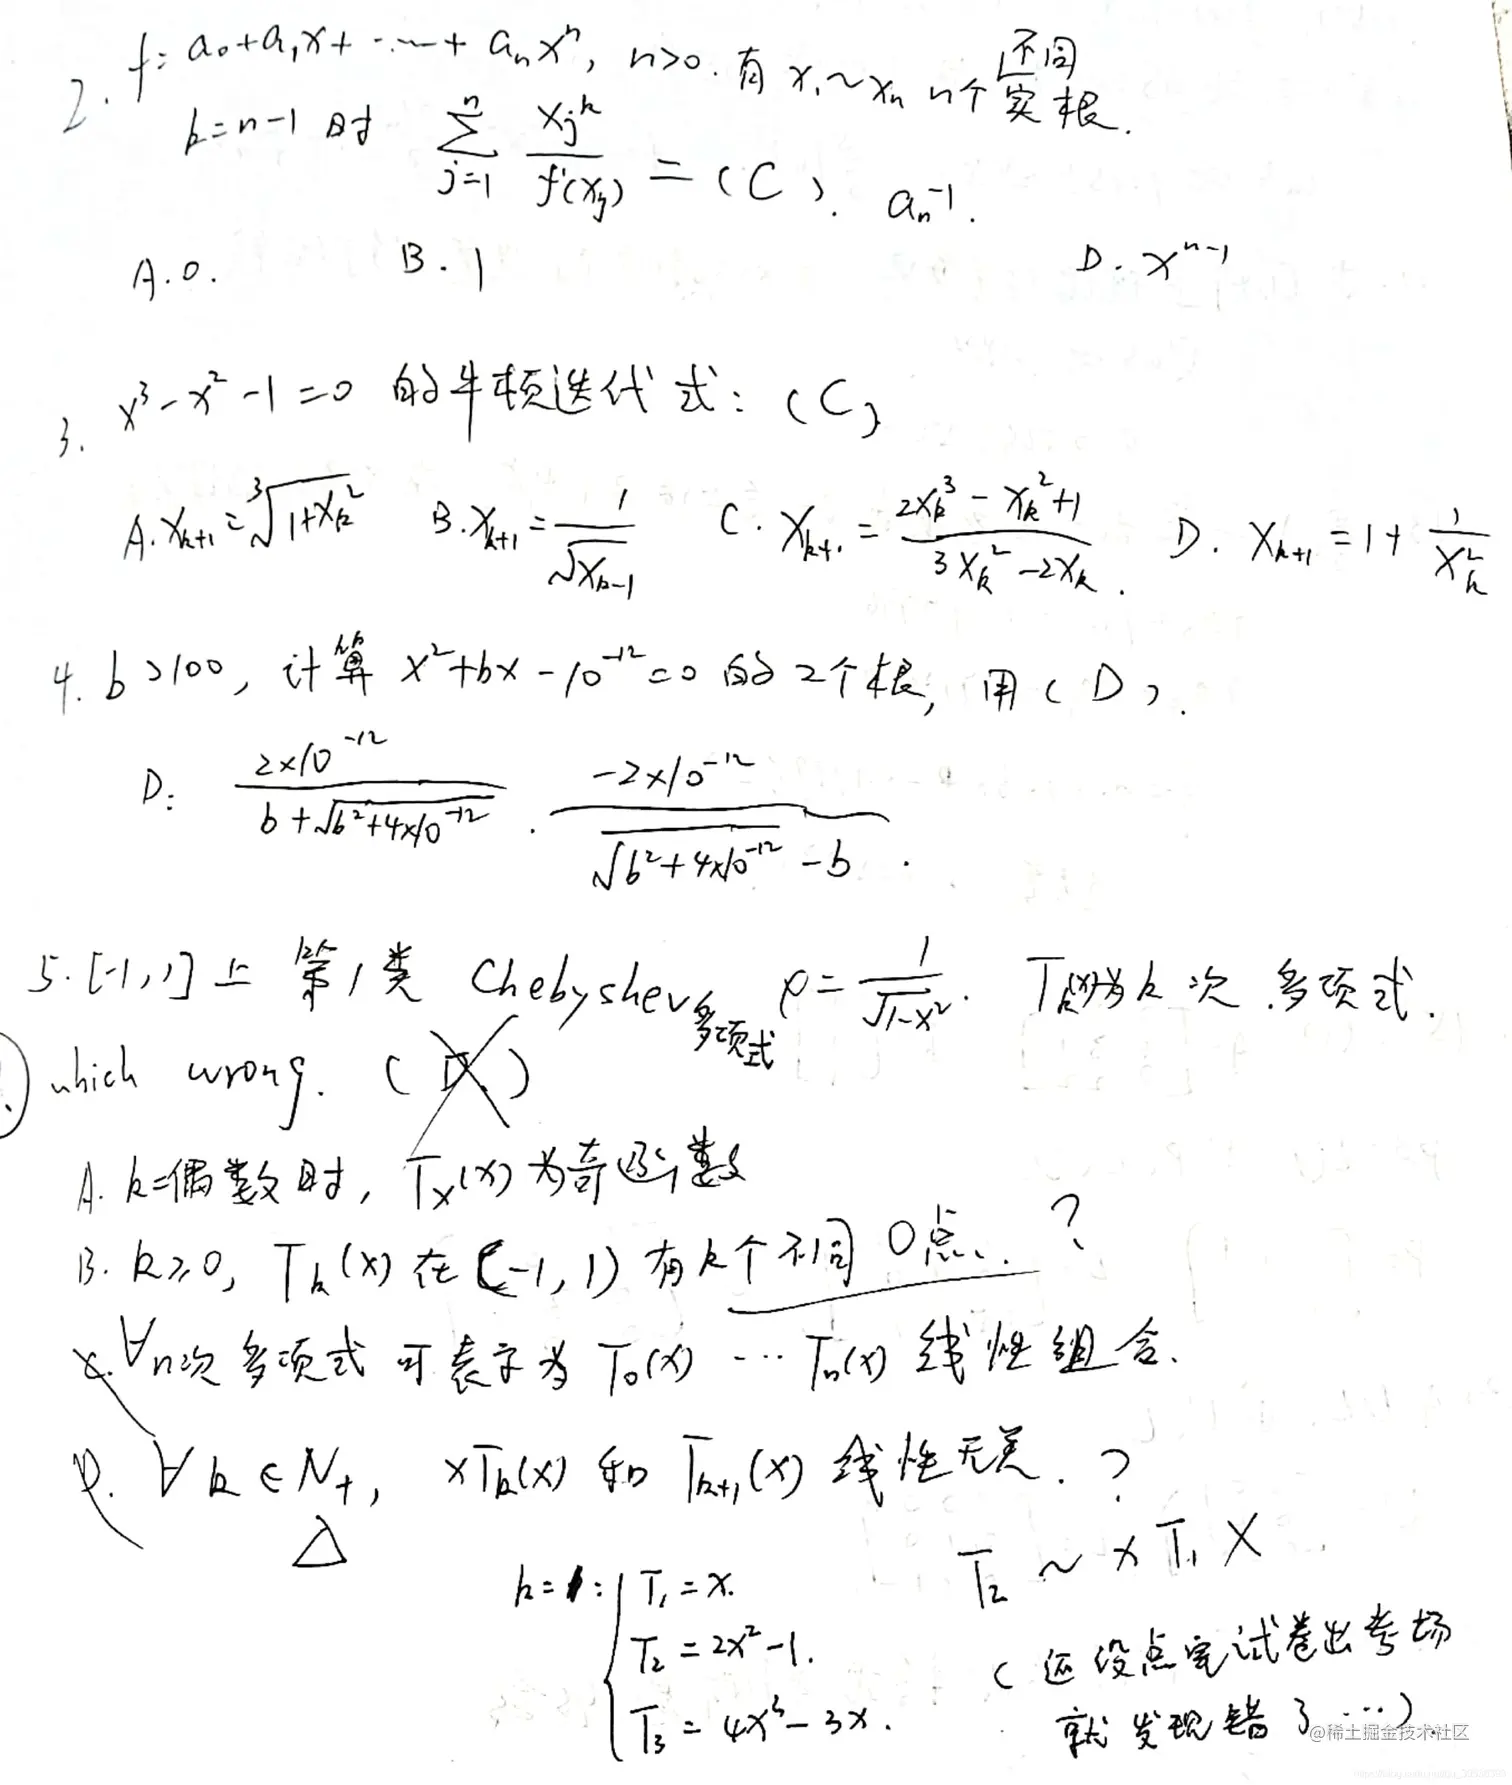 2. f = a₀+a₁x+ ······ + aₙxⁿ, n>0. 有 x₁~xₙ n个不同实根.
k=n-1 时 \sum_{j=1}^{n} \frac{x_j^k}{f'(x_j)} = (C). aₙ⁻¹.
A.0. B.1 D. xⁿ⁻¹
3. x³-x²-1=0 的牛顿迭代式: (C)
A. x_{k+1} = \sqrt[3]{1+x_k^2} B. x_{k+1} = \frac{1}{\sqrt{x_k-1}} C. x_{k+1} = \frac{2x_k^3-x_k^2+1}{3x_k^2-2x_k}. D. x_{k+1} = 1+\frac{1}{x_k^2}
4. b>100, 计算 x²+bx-10⁻¹²=0 的2个根, 用(D).
D: \frac{2×10^{-12}}{b+\sqrt{b^2+4×10^{-12}}}. \frac{-2×10^{-12}}{\sqrt{b^2+4×10^{-12}}-b}.
5. [-1,1]上 第1类 Chebyshev多项式 ρ=\frac{1}{\sqrt{1-x^2}}. T_k(x)为k次多项式.
which wrong. (D)
A. k=偶数时, Tₓ(x)为奇函数
B. k≥0, T_k(x) 在 (-1,1) 有k个不同0点. ?
C. ∀n次多项式 可表示为 T₀(x) ··· Tₙ(x) 线性组合.
D. ∀k∈N₊, xT_k(x) 和 T_{k+1}(x) 线性无关. ?
△
T₂ ~ xT₁ X
k=1: T₁=x.
T₂=2x²-1.
T₃=4x³-3x.
(还没点完试卷出考场
就发现错了···)
@稀土掘金技术社区